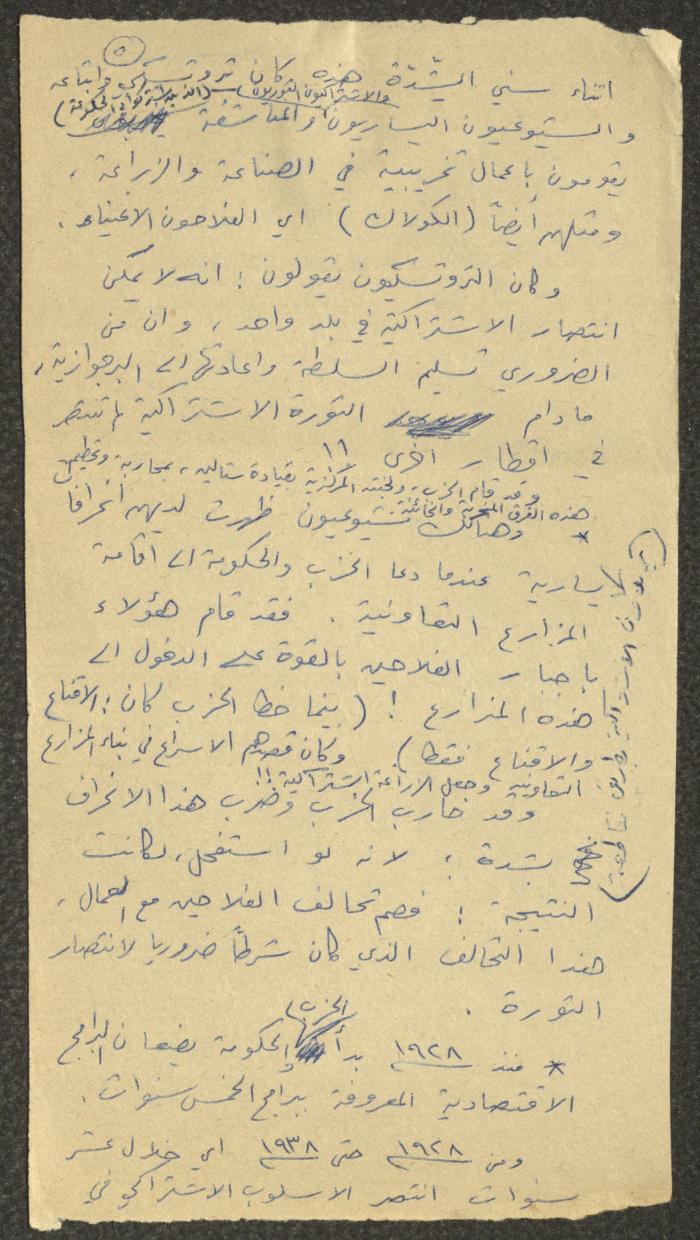 ٥
اثناء سني الشّدة هذه كان تروتسكي واتباعه
والاشتراكيون الثوريون
والشيوعيون اليساريون والمناشفة
يقومون باعمال تخريبية في الصناعة والزراعة ،
ومثلهم أيضاً (الكولاك) اي الفلاحون الاغنياء .
وكان التروتسكيون يقولون : انه لا يمكن
انتصار الاشتراكية في بلد واحد ، وان من
الضروري تسليم السلطة واعادتها الى البرجوازية ،
ما دام الثورة الاشتراكية لم تنتصر
في اقطار اخرى !!
وقد قام الحزب ، ولجنته المركزية بقيادة ستالين ، بمحاربة وتحطيم
هذه الفرق المخربة والخائنة .
* وهنالك شيوعيون ظهرت لديهم انحرافات
يسارية عندما دعا الحزب والحكومة الى اقامة
المزارع التعاونية . فقد قام هؤلاء
باجبار الفلاحين بالقوة على الدخول الى
هذه المزارع ! (بينما خط الحزب كان : الاقناع
والاقناع فقط) . وكان قصدهم الاسراع في بناء المزارع
التعاونية وجعل الزراعة اشتراكية !!
وقد حارب الحزب وضرب هذا الانحراف
بشدة ؛ لانه لو استفحل ، لكانت
النتيجة : فصم تحالف الفلاحين مع العمال ،
هذا التحالف الذي كان شرطاً ضروريا لانتصار
الثورة .
* منذ ١٩٢٨ بدأ الحزب والحكومة يضعان البرامج
الاقتصادية المعروفة ببرامج الخمس سنوات .
ومن ١٩٢٨ حتى ١٩٣٨ اي خلال عشر
سنوات انتصر الاسلوب الاشتراكي في